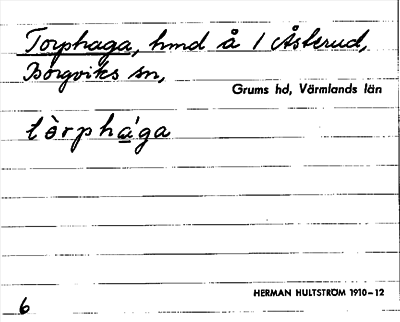 Torphaga, hmd å 1 Åsterud,
Borgviks sn,
Grums hd, Värmlands län
tòrphága
HERMAN HULTSTRÖM 1910–12
6